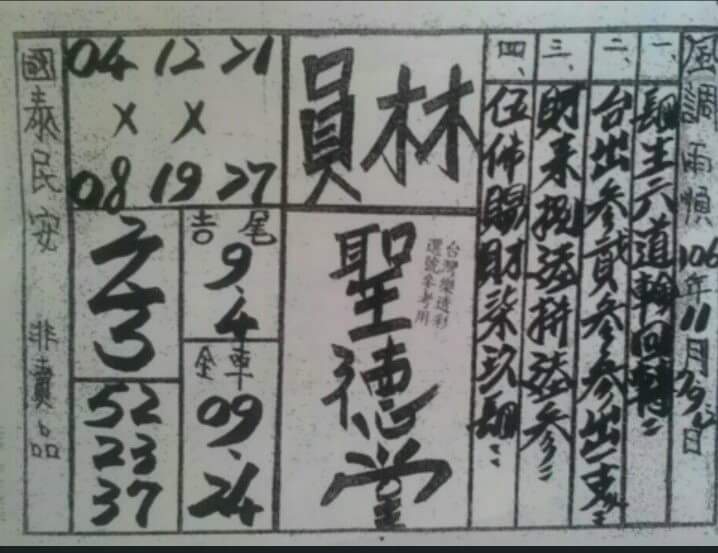 風調雨順 106年11月29日
一、
肆生六道輪回轉
二、
台出參貳參參出支
三、
財來捌陸拼陸參
四、
伍佛賜財柒玖肆
林員
台灣樂透彩
選號參考用
聖德堂
04 12 21
X X
08 19 27
尾吉
9、4
車金
09、24
52
23
37
國泰民安 非賣品